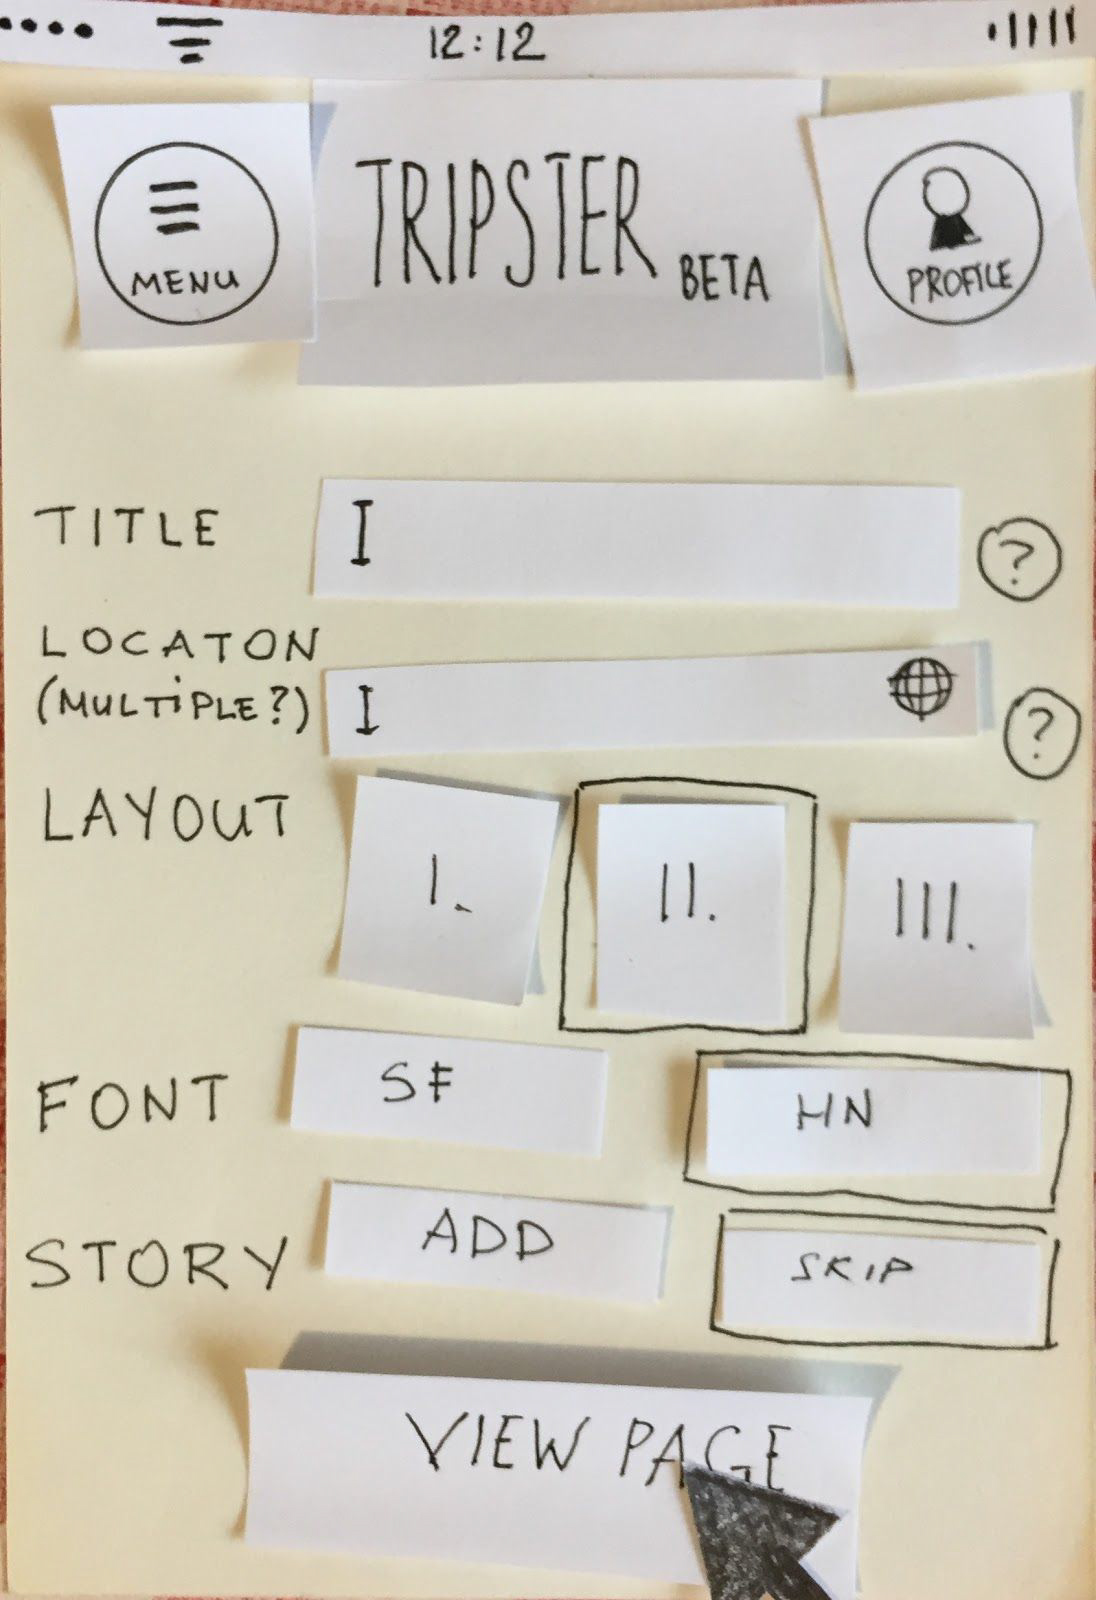 12:12
MENU
TRIPSTER BETA
PROFILE
TITLE I ?
LOCATON
(MULTiPLE?) I ?
LAYOUT I. II. III.
FONT SF HN
STORY ADD SKIP
VIEW PAGE